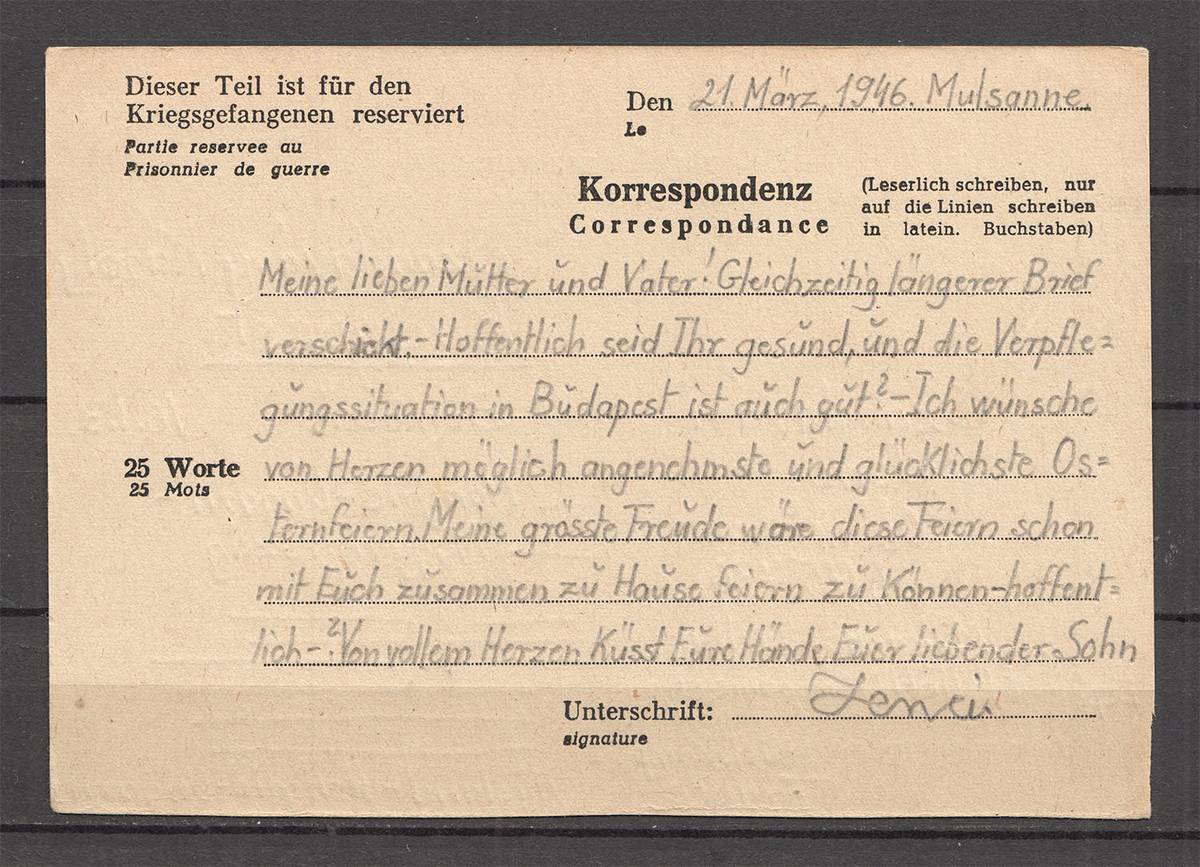 Dieser Teil ist für den
Kriegsgefangenen reserviert
Partie reservee au
Prisonnier de guerre
Den 21. März. 1946. Mulsanne.
Le
Korrespondenz
Correspondance
(Leserlich schreiben, nur
auf die Linien schreiben
in latein. Buchstaben)
Meine lieben Mutter und Vater! Gleichzeitig längerer Brief
verschickt.-Hoffentlich seid Ihr gesund, und die Verpfle=
gungssituation in Budapest ist auch gut?-Ich wünsche
25 Worte
25 Mots
von Herzen möglich angenehmste und glücklichste Os=
ternfeiern. Meine grösste Freude wäre diese Feiern schon
mit Euch zusammen zu Hause feiern zu Können-hoffent=
lich-? Von vollem Herzen Küsst Eure Hände Euer liebender Sohn
Unterschrift:
signature